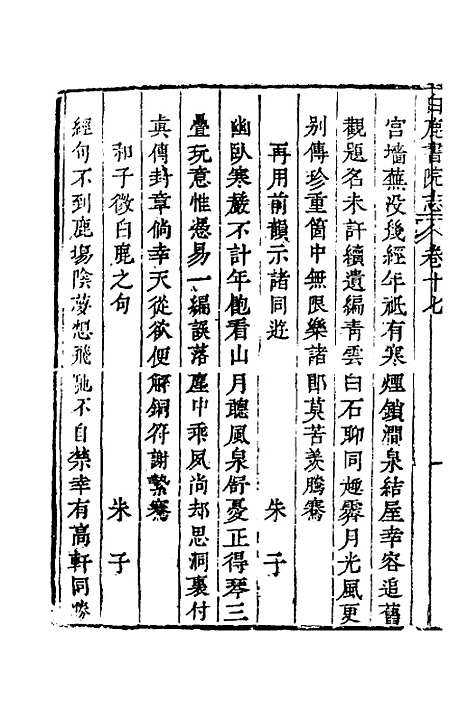 白鹿書院志 卷十七 一
宮墻蕪没幾經年祇有寒煙鎖澗泉結屋幸容追舊
觀題名未許續遺編青雲白石聊同趣霽月光風更
别傳珍重箇中無限樂諸郎莫苦羨騰騫
再用前韻示諸同遊 朱子
幽臥寒巖不計年飽看山月聽風泉舒憂正得琴三
疊玩意惟慿易一編誤落塵中乘夙尚却思洞裏付
眞傳封章倘幸天從欲便解銅符謝縶騫
和子澂白鹿之句 朱子
經句不到鹿場陰夢想飛馳不自禁幸有高軒同勝